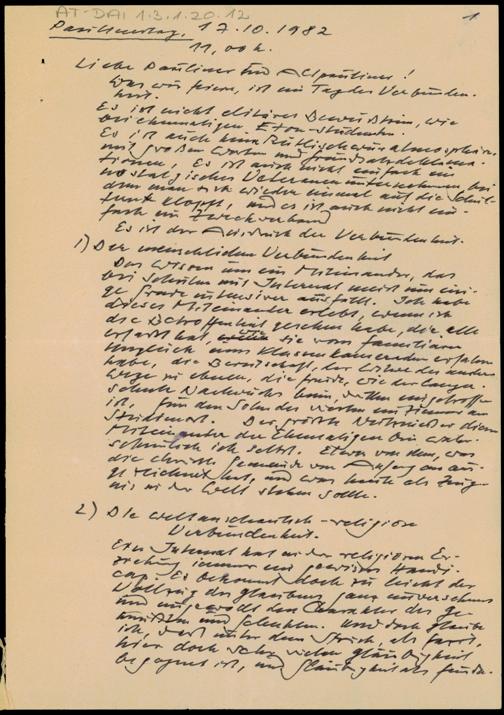 AT-DAI 1.3.1.20.12
1
Paulinertag, 17.10.1982
11,00 h.
Liebe Pauliner und Altpauliner!
Was wir feiern, ist ein Tag der Verbunden-
heit.
Es ist nicht elitäres Bewußtsein, wie
bei ehemaligen Eton-Studenten.
Es ist auch keine Rütlischwuratmosphäre
mit großen Worten und
Es ist auch nicht einfach ein
nostalgisches Veteranenunternehmen, bei
dem man sich wieder einmal auf die Schul-
tern klopft, und es ist auch nicht ein-
fach ein Zweckverband
Es ist der Ausdruck der Verbundenheit.
1) Der menschlichen Verbundenheit
Das Wissen um ein Miteinander, das
bei Schulen mit Internat meist um eini-
ge Grade intensiver ausfällt. Ich habe
dieses Miteinander erlebt, wenn ich
die Betroffenheit gesehen habe, die alle
erfaßt hat, sie vom familiären
Unglück eines Klassenkameraden erfahren
habe, die Bereitschaft, der Witwe des andern
Wege zu ebnen, die Freude, wie der
Nachwuchs beim eingetroffen
ist, für den Sohn des vierten ein Zimmer am
Studienort. Der größte dieses
Miteinander der Ehemaligen bin wahr-
scheinlich ich selbst. Etwas von dem, was
die christl. Gemeinde von Anfang an aus-
gezeichnet hat, und was heute als Zeug-
nis in der Welt stehen sollte.
2) Die weltanschaulich-religiöse
Verbundenheit.
Ein Internat hat in der religiösen Er-
ziehung immer ein gewisses Handi-
cap. Es bekommt doch zu leicht der
Vollzug des Glaubens ganz unversehens
und ungewollt den Charakter des ge-
und Schulischen. Und doch glaube
ich, daß unter dem Strich, als Fazit,
hier doch sehr vielen Gläubigkeit
begegnet ist, und Gläubigkeit als